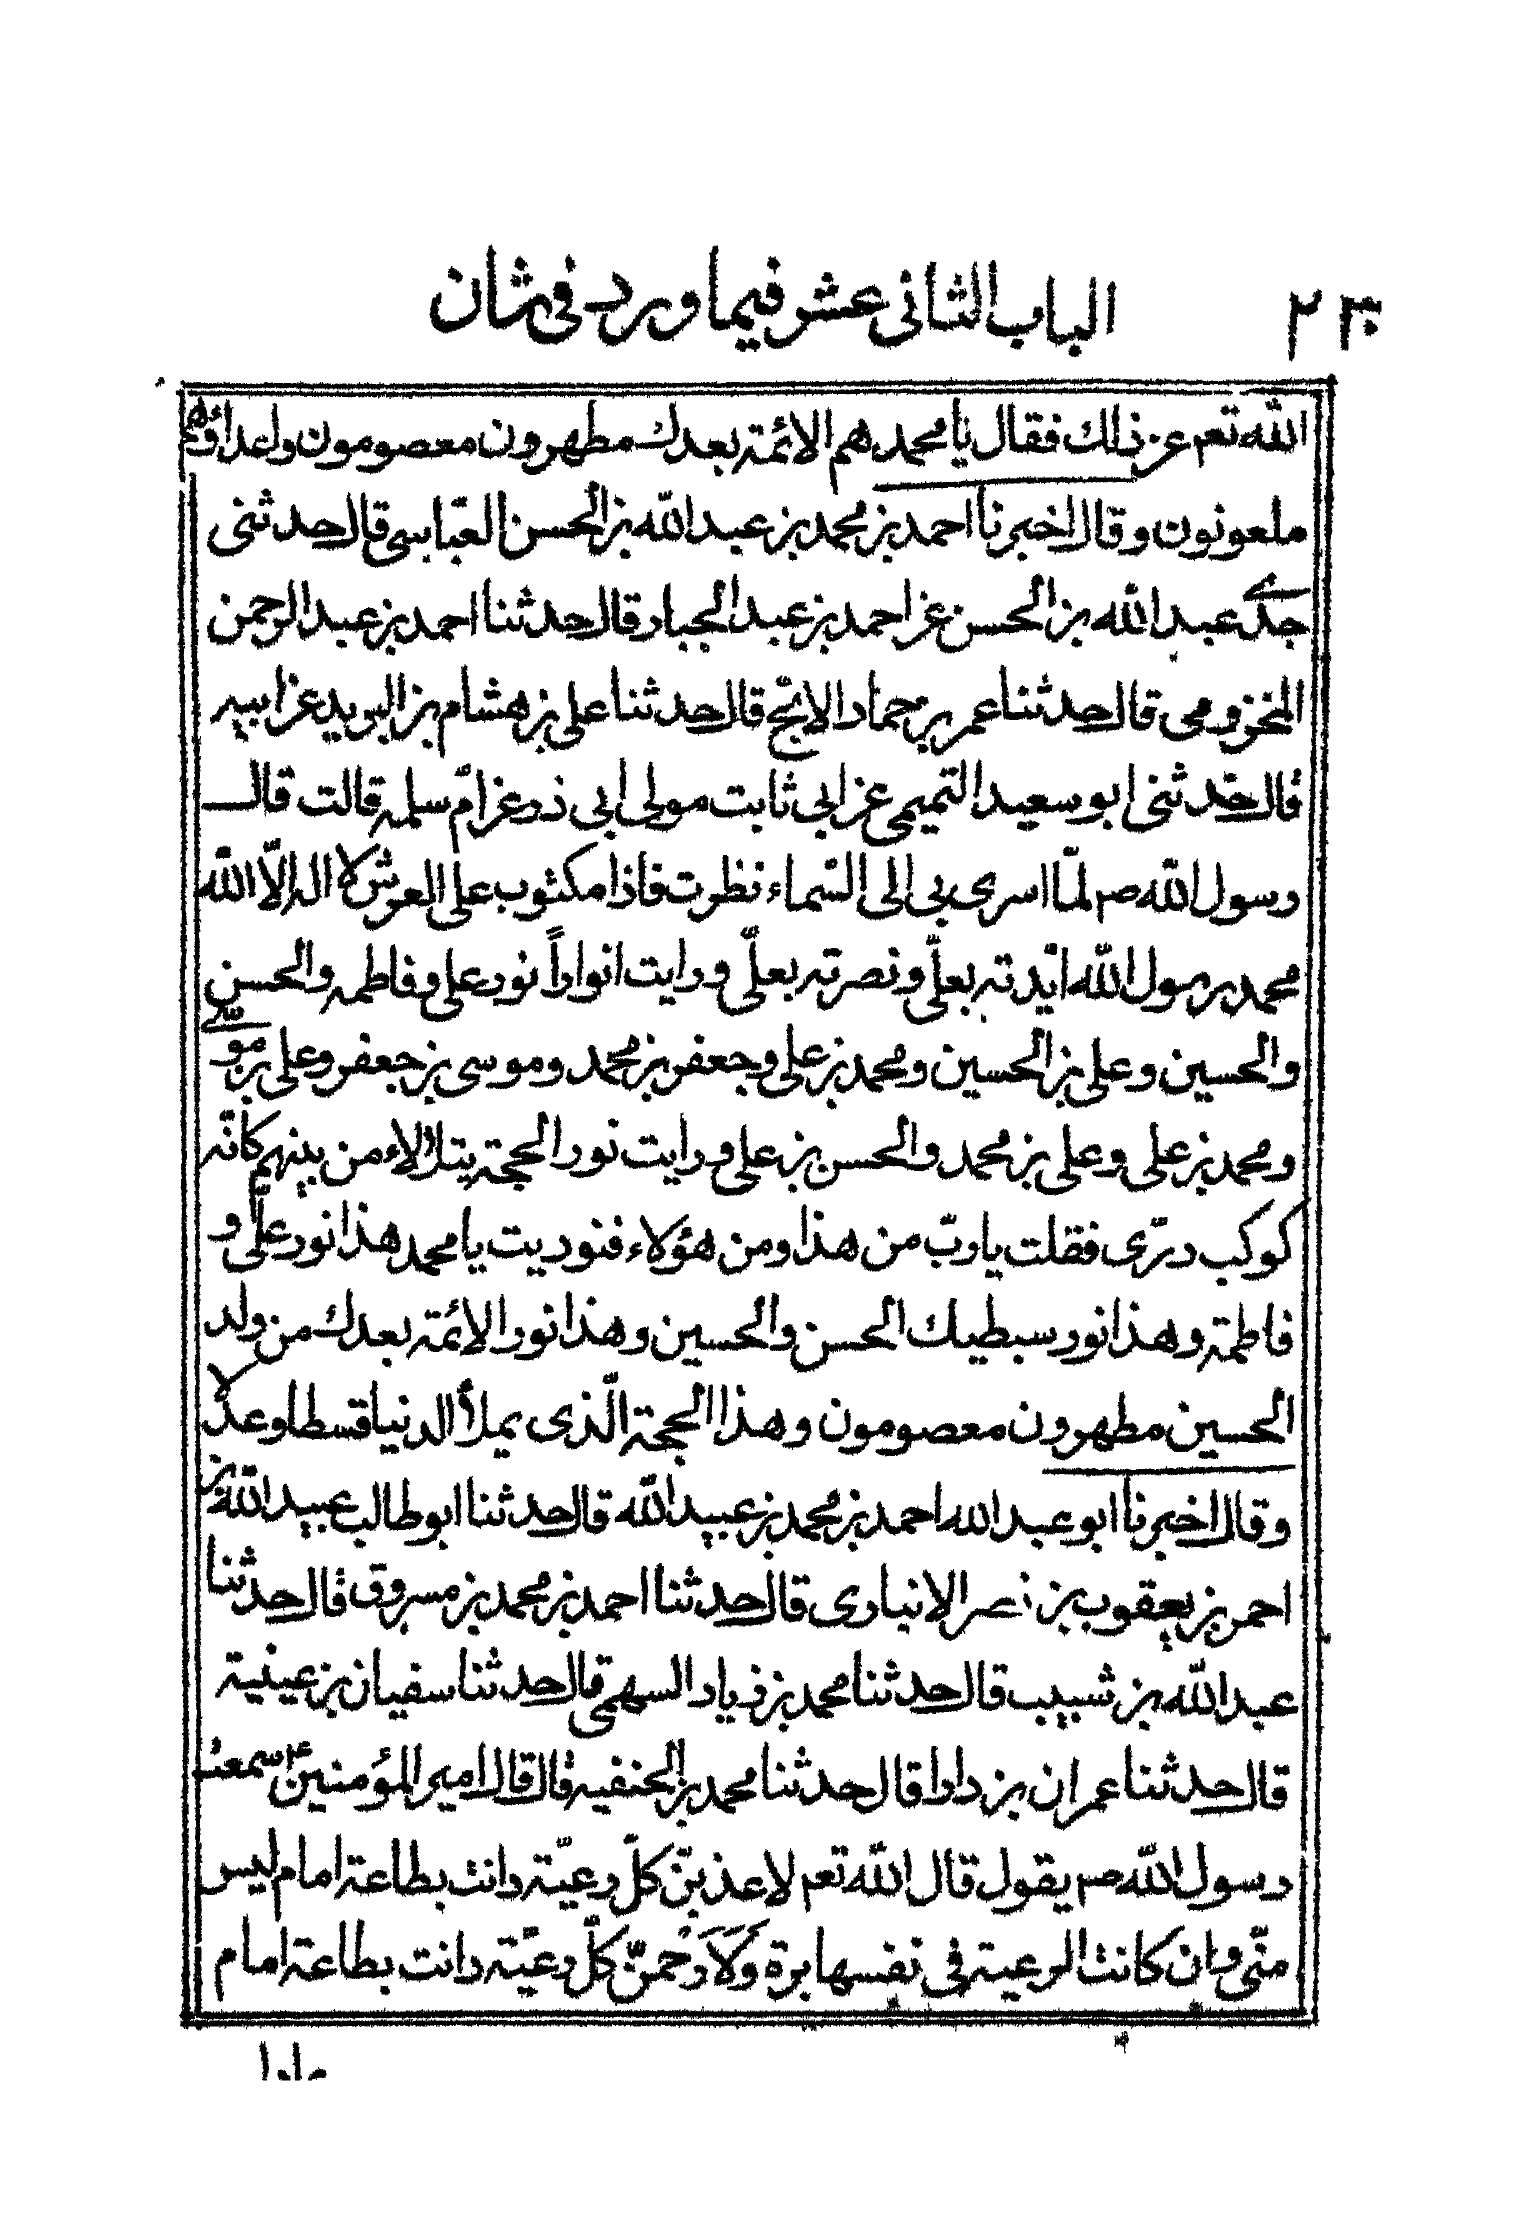 الباب الثانى عشر فيما ورد فى شان
الله تعم عن ذلك فقال يا محمد هم الائمة بعدك مطهرون معصومون واعداؤهم
ملعونون وقال اخبرنا احمد بن محمد بن عبد الله بن الحسن العبّاسى قال حدثنى
جدّى عبد الله بن الحسن عن احمد بن عبد الجبار قال حدثنا احمد بن عبد الرحمن
المخزومى قال حدثنا عمر بن حماد الابّح قال حدثنا على بن هشام بن البريد عن ابيه
قال حدثنى ابو سعيد التميمى عن ابى ثابت مولى ابى ذر عن امّ سلمه قالت قال
رسول الله صم لمّا اسرى بى الى السّماء نظرت فاذا مكتوب على العرش لا اله الّا الله
محمد رسول الله ايّدته بعلّى ونصرته بعلّى ورايت انواراً نور على وفاطمه والحسن
والحسين وعلى بن الحسين ومحمد بن على وجعفر بن محمد وموسى بن جعفر وعلى بن موسى
ومحمد بن على وعلى بن محمد والحسن بن على ورايت نور الحجة يتلألاء من بينهم كانّه
كوكب درّى فقلت يا ربّ من هذا ومن هؤلاء فنوديت يا محمد هذا نور علّى و
فاطمة وهذا نور سبطيك الحسن والحسين وهذا نور الائمة بعدك من ولد
الحسين مطهرون معصومون وهذا الحجة الّذى يملأ الدنيا قسطا وعدلا
وقال اخبرنا ابو عبد الله احمد بن محمد بن عبيد الله قال حدثنا ابو طالب عبيد الله بن
احمد بن يعقوب بن نصر الانبارى قال حدثنا احمد بن محمد بن مسروق قال حدثنا
عبد الله بن شبيب قال حدثنا محمد بن زياد السهمى قال حدثنا سفيان بن عيينة
قال حدثنا عمران بن دارا قال حدثنا محمد بن الحنفيه قال قال امير المؤمنين ع سمعت
رسول الله صم يقول قال الله تعم لاعذبنّ كلّ رعيّة دانت بطاعة امام ليس
منّى وان كانت الرعية فى نفسها برة ولارحمنّ كلّ رعيّة دانت بطاعة امام